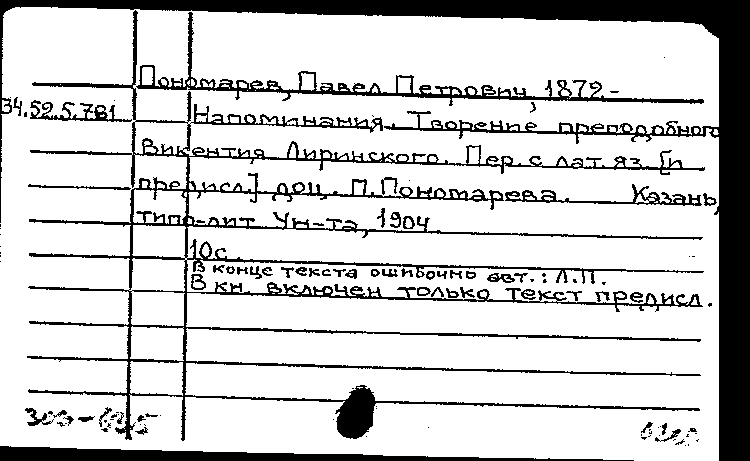 Пономарев, Павел Петрович, 1872-
34.52.5.781 Напоминания. Творение преподобного
Викентия Лиринского. Пер. с лат. яз. [и
предисл.] доц. П. Пономарева. Казань,
типо-лит. Ун-та, 1904.
10с.
В конце текста ошибочно авт.: Л.П.
В кн. включен только текст предисл.